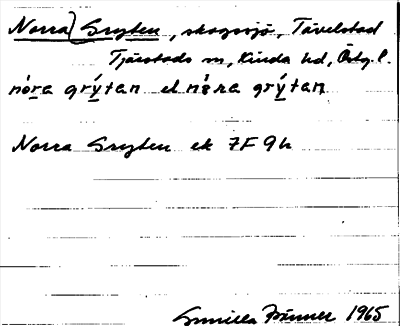 Norra) Gryten, skogssjö, Tävelstad
Tjärstads sn, Kinda hd, Östg. l.
nóra grýtan el nòra grýtan
Norra Gryten ek 7F 9h
Gunilla 1965